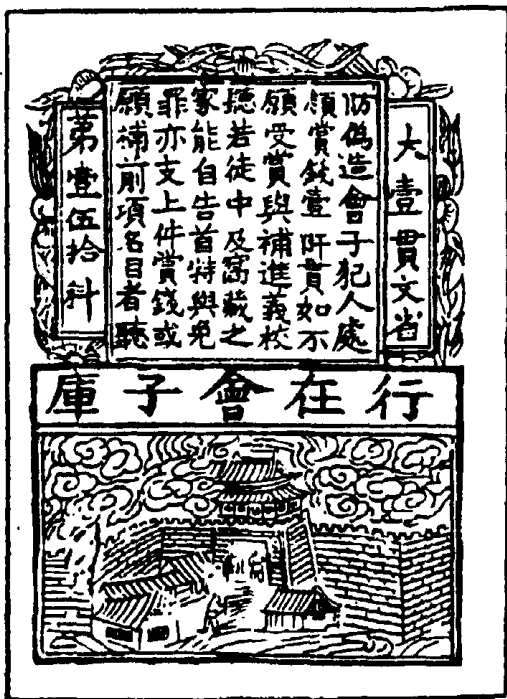 大壹貫文省
仿偽造會子犯人處
領賞錢壹阡貫如不
願受賞與補進義校
聽若徒中及窩藏之
家能自告首特與免
罪亦支上件賞錢或
願補前項名目者聽
第壹伍拾
行在會子庫